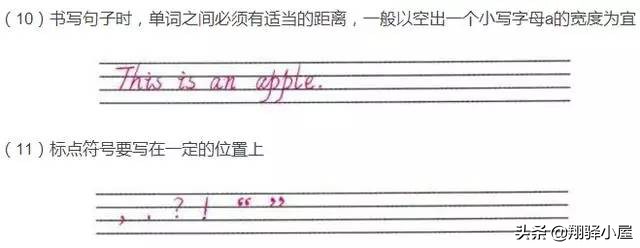 （10）书写句子时，单词之间必须有适当的距离，一般以空出一个小写字母a的宽度为宜
This is an apple.
（11）标点符号要写在一定的位置上
, . ? ! “ ”
头条 @翔驿小屋